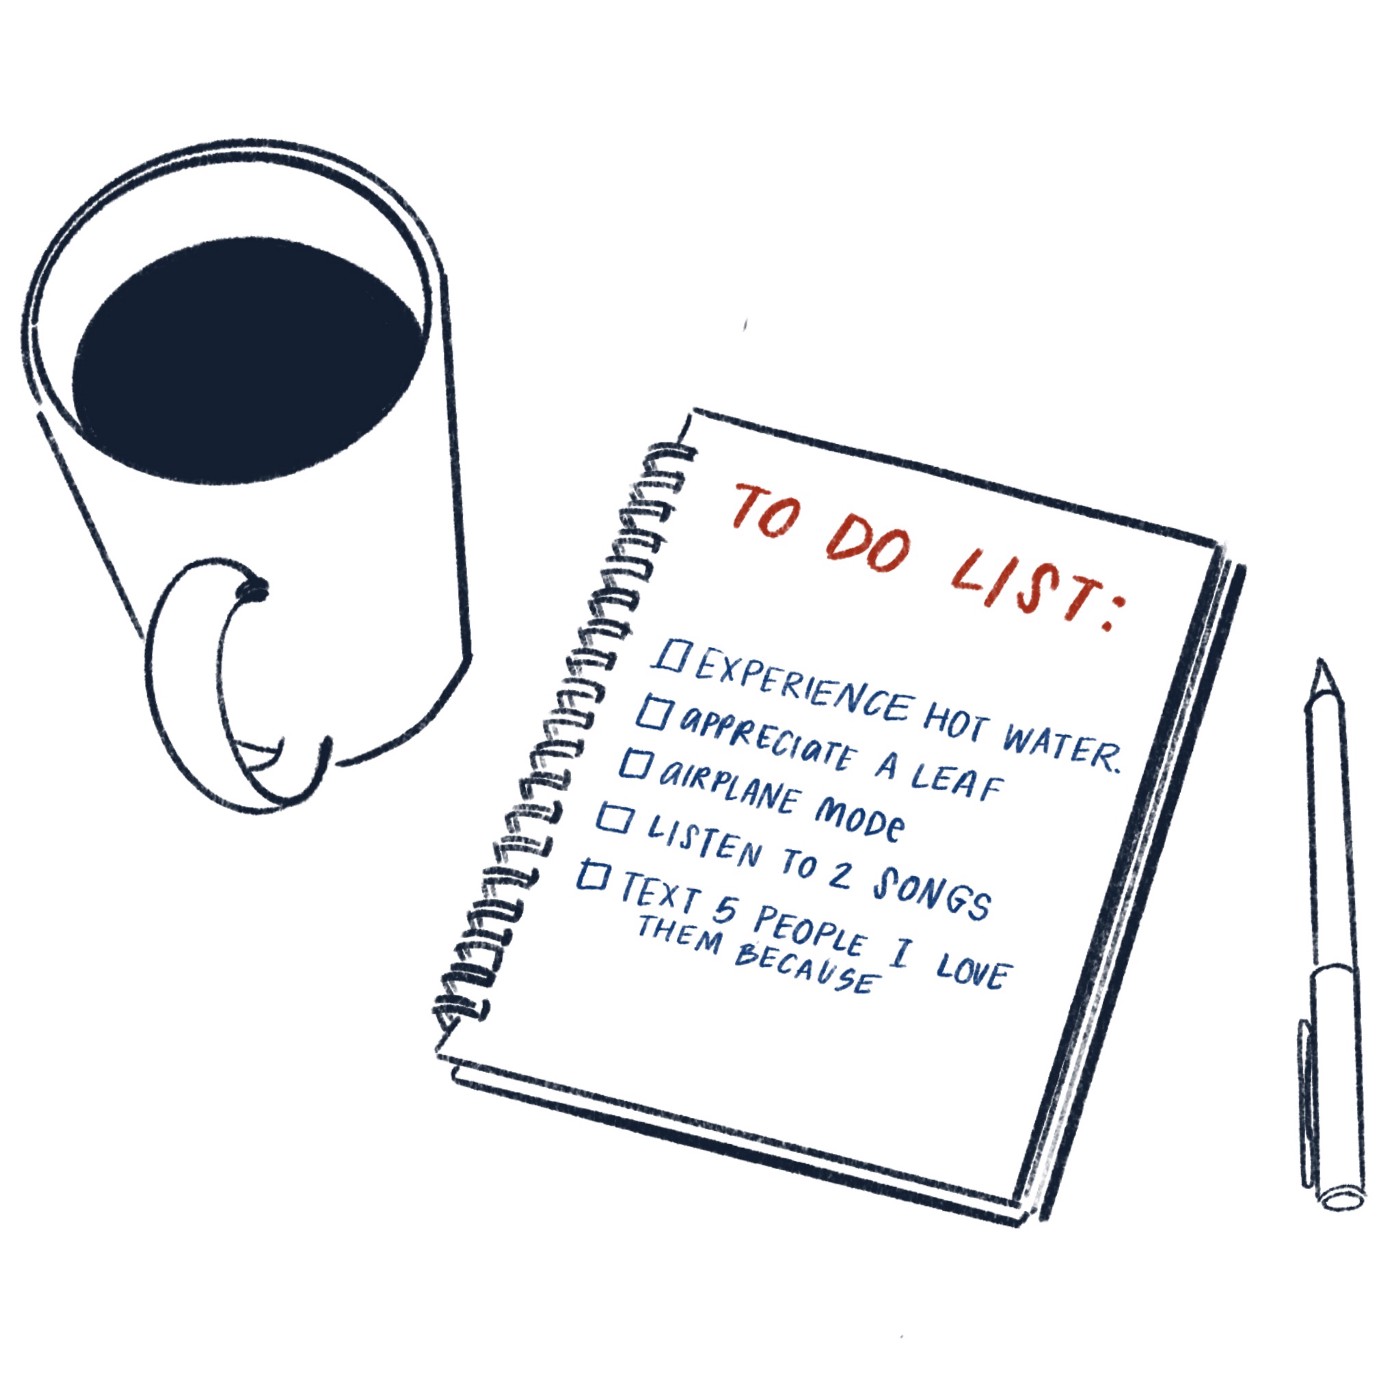 TO DO LIST:
EXPERIENCE HOT WATER.
APPRECIATE A LEAF
AIRPLANE MODE
LISTEN TO 2 SONGS
TEXT 5 PEOPLE I LOVE
THEM BECAUSE